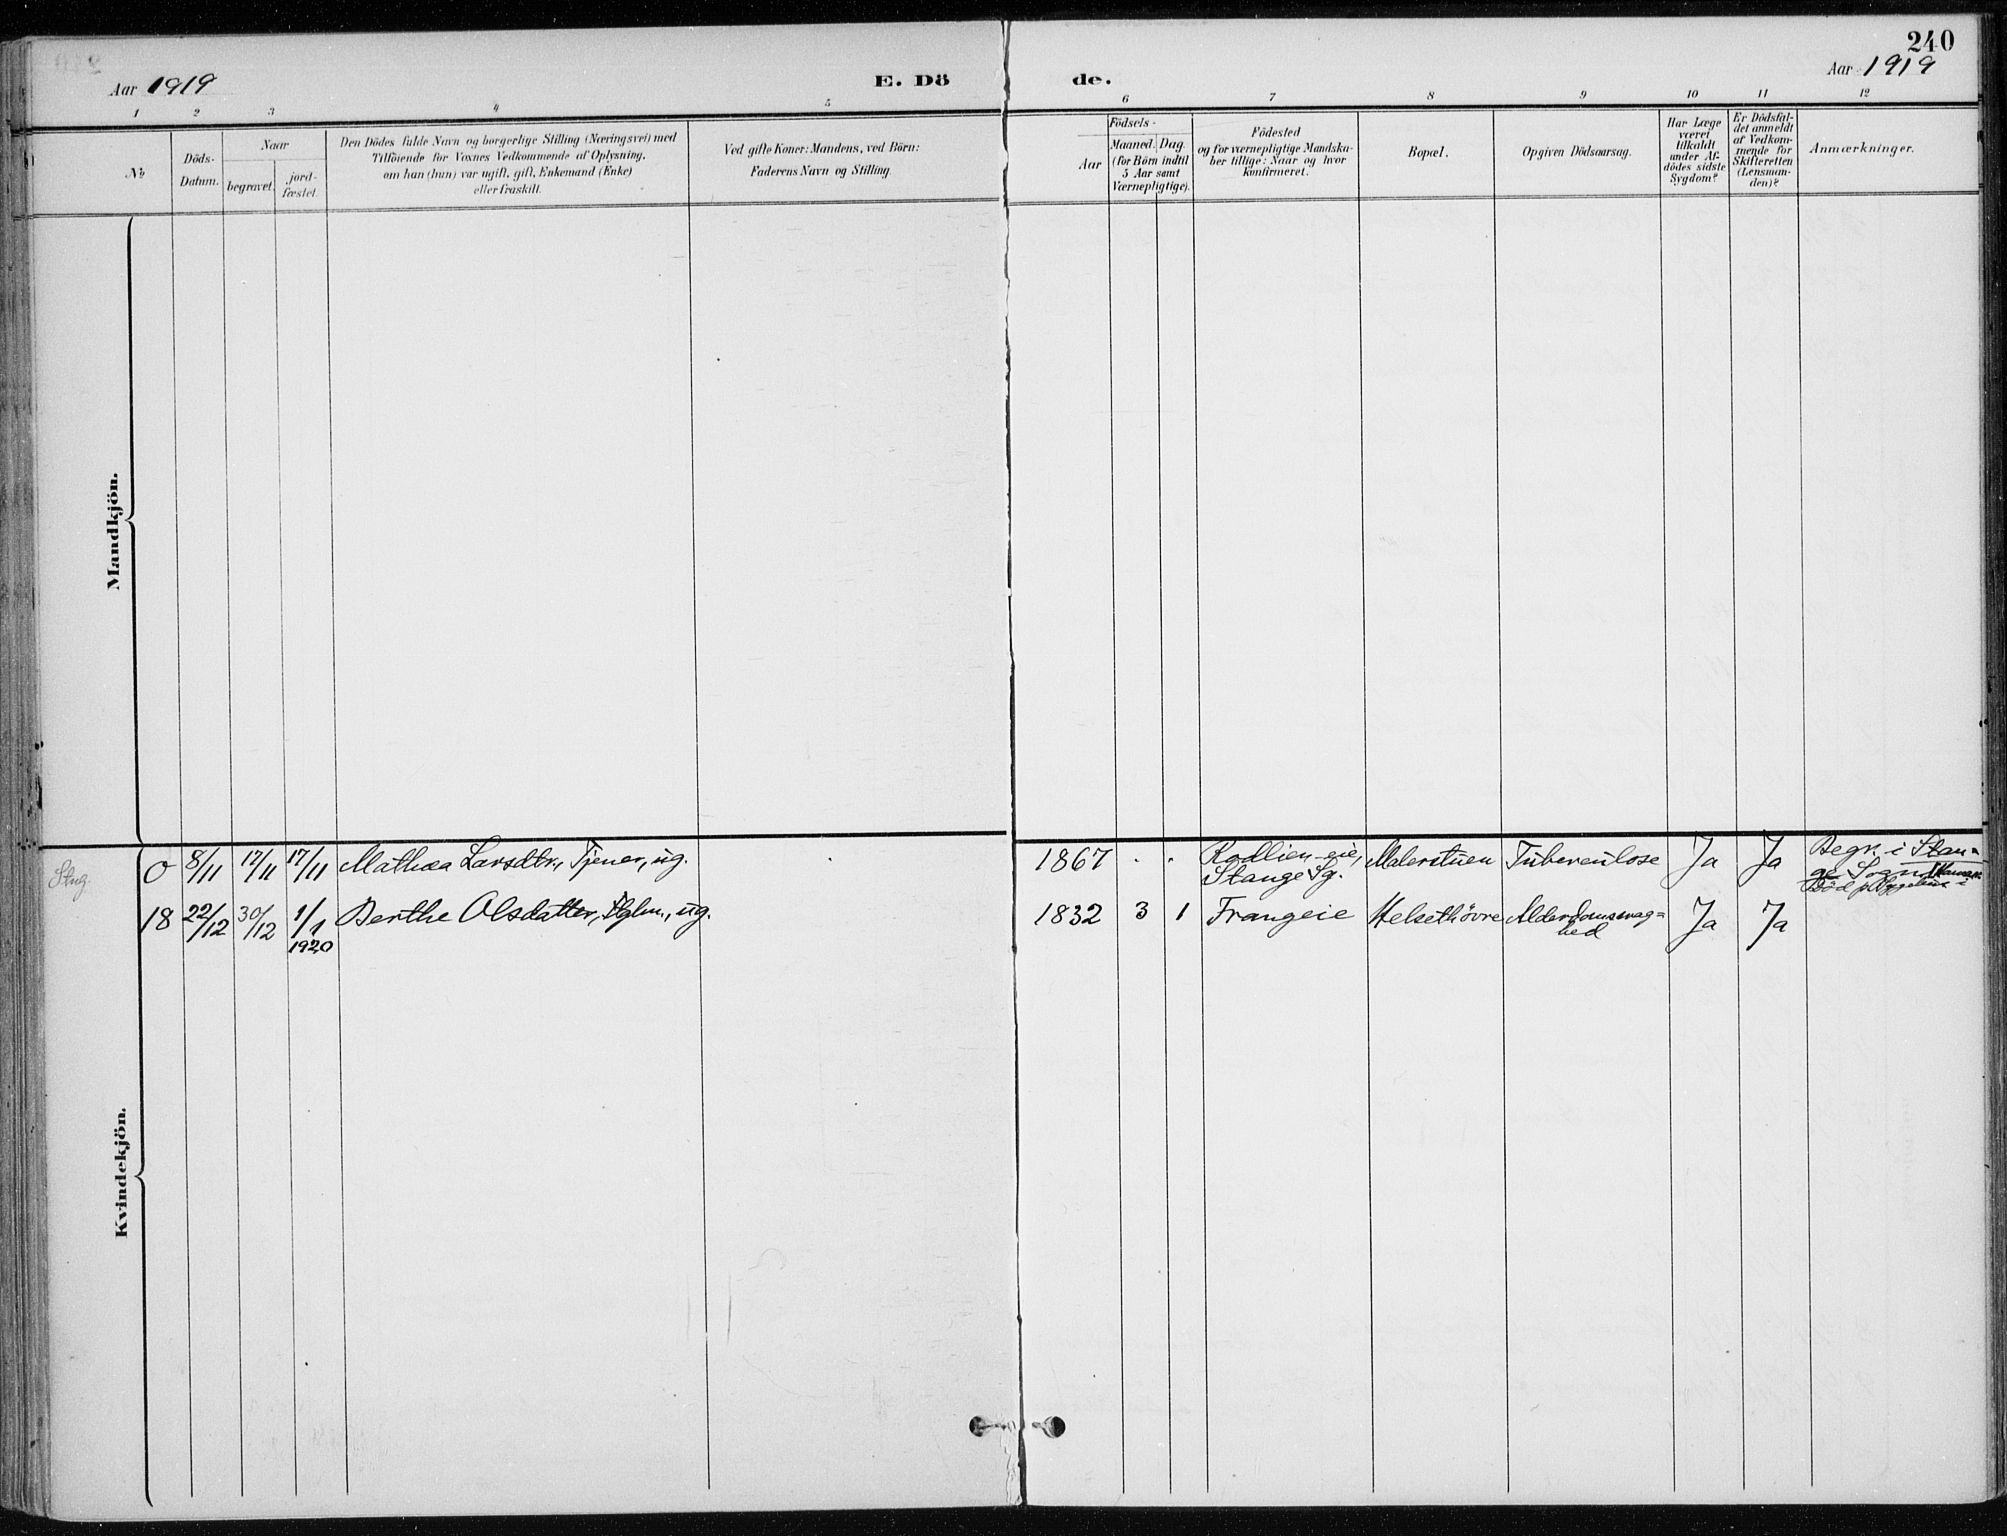 240
Aar 1919
E. Dö de.
Aar 1919
1 2 3 4 5 6 7 8 9 10 11 12
No
Döds-
Datum.
Naar
begravet.
jord-
fæstet.
Den Dödes fulde Navn og borgerlige Stilling (Næringsvei) med
Tilföiende for Voxnes Vedkommende af Oplysning,
om han (hun) var ugift, gift, Enkemand (Enke)
eller fraskilt.
Ved gifte Koner: Mandens, ved Börn:
Faderens Navn og Stilling.
Födsels-
Aar
Maaned. Dag.
(for Börn indtil
5 Aar samt
Værnepligtige).
Födested
og for værnepligtige Mandska-
ber tillige: Naar og hvor
konfirmeret.
Bopæl.
Opgiven Dödsaarsag.
Har Læge
været
tilkaldt
under Af-
dödes sidste
Sygdom?
Er Dödsfal-
det anmeldt
af Vedkom-
mende for
Skifteretten
(Lensman-
den)?
Anmærkninger.
Mandkjön.
Stng.
0 8/11 17/11 17/11 Mathea Larsdtr., Tjener, ug. 1867 . . Rodlien eie, Malerstuen Tuberculose Ja Ja Begr. i Stan-
Stange Sg. ge Sogn
Död p.
18 22/12 30/12 1/1 Berthe Olsdatter, ug. 1832 3 1 Frangeie Helsethövre Alderdomssvag-
hed Ja Ja
1920
Kvindekjön.